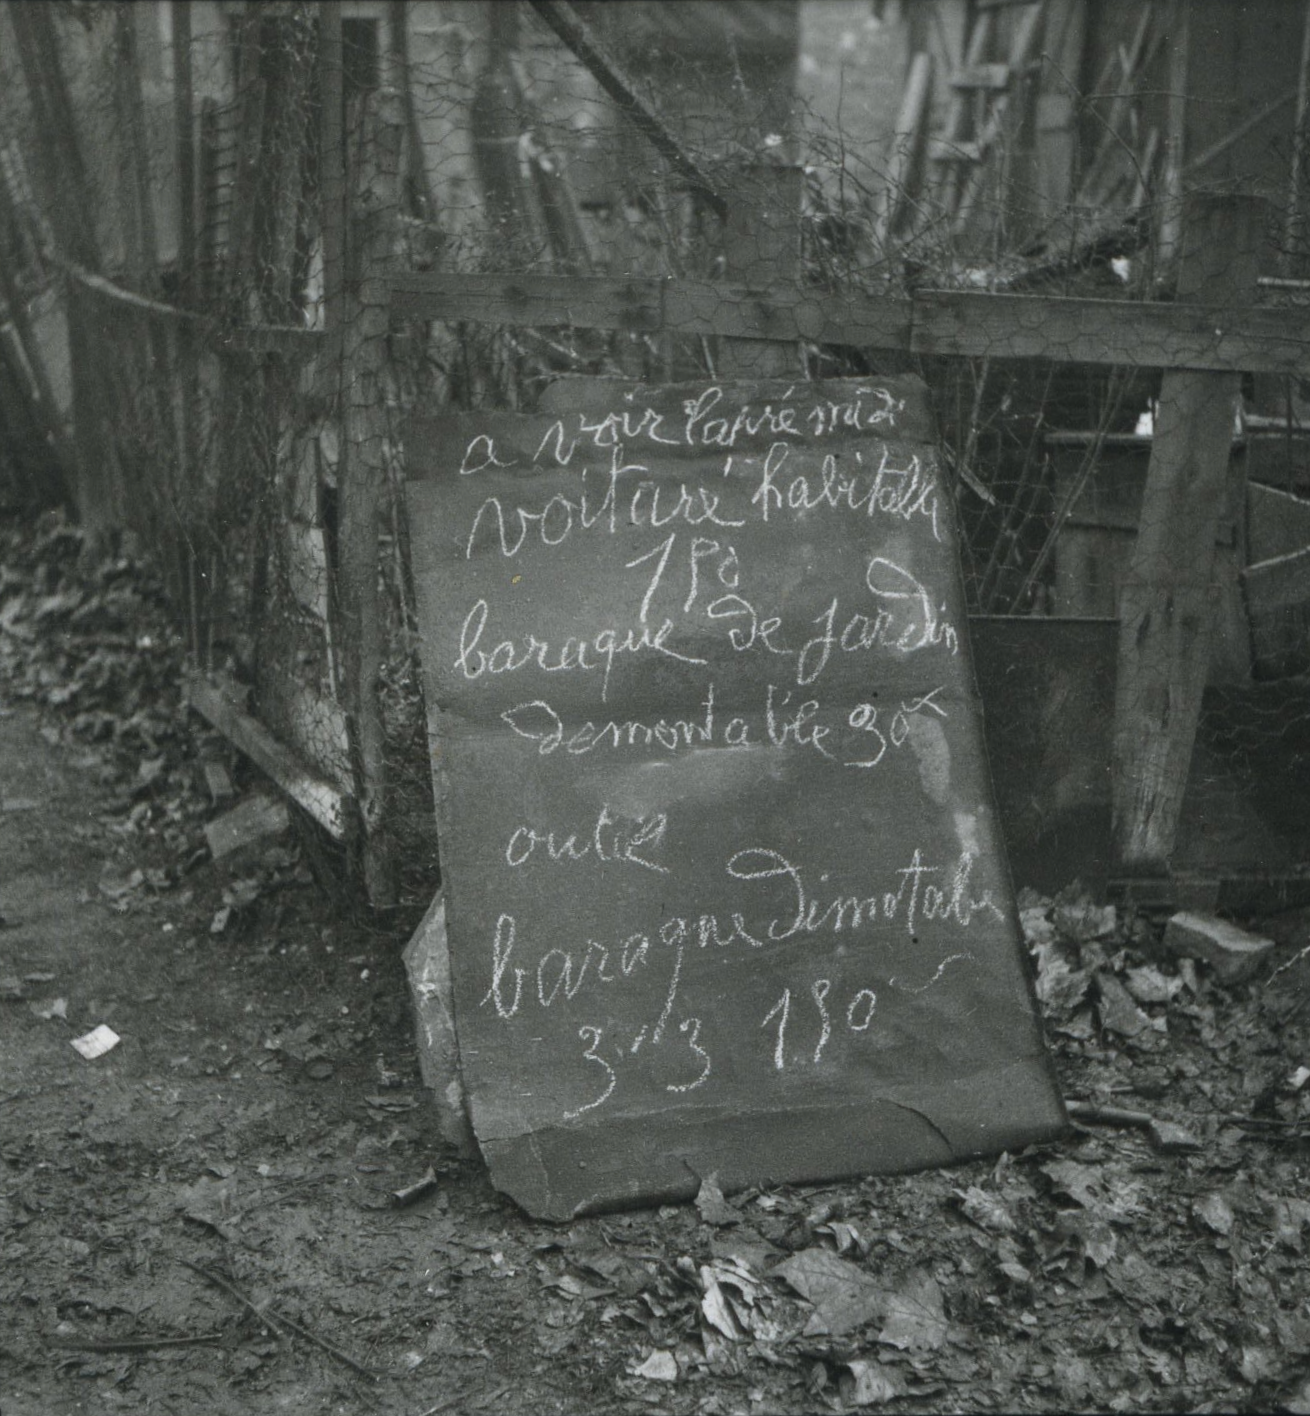 a voir l'apré midi
voituré habitable
150
baraque de jardin
demontable 30
outil
baraque dimotable
3 3 150